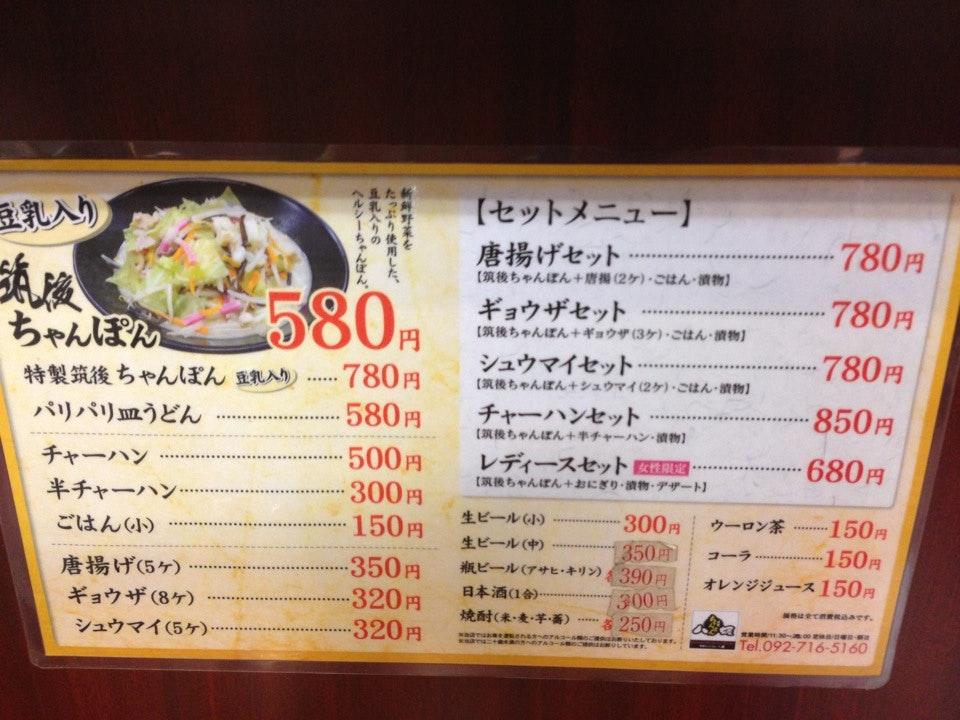 豆乳入り
筑後
ちゃんぽん
新鮮野菜を
たっぷり使用した、
豆乳入りの
ヘルシーちゃんぽん。
580円
特製筑後ちゃんぽん 豆乳入り ……780円
パリパリ皿うどん ……580円
チャーハン ……500円
半チャーハン ……300円
ごはん(小) ……150円
唐揚げ(5ケ) ……350円
ギョウザ(8ケ) ……320円
シュウマイ(5ケ) ……320円
【セットメニュー】
唐揚げセット ……780円
【筑後ちゃんぽん+唐揚(2ケ)・ごはん・漬物】
ギョウザセット ……780円
【筑後ちゃんぽん+ギョウザ(3ケ)・ごはん・漬物】
シュウマイセット ……780円
【筑後ちゃんぽん+シュウマイ(2ケ)・ごはん・漬物】
チャーハンセット ……850円
【筑後ちゃんぽん+半チャーハン・漬物】
レディースセット 女性限定 ……680円
【筑後ちゃんぽん+おにぎり・漬物・デザート】
生ビール(小) ……300円
生ビール(中) ……350円
瓶ビール(アサヒ・キリン) 各390円
日本酒(1合) ……300円
焼酎(米・麦・芋・蕎) ……各250円
※当店ではお車を運転される方へのアルコール類のご提供はお断りいたしております。
※当店では二十歳未満の方へのアルコール類のご提供はお断りしています。
ウーロン茶 ……150円
コーラ ……150円
オレンジジュース 150円
価格は全て消費税込みです。
Tel.092-716-5160